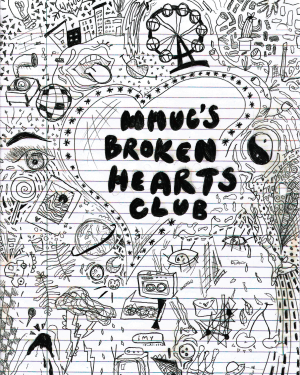 MMUC'S
BROKEN
HEARTS
CLUB
IMY